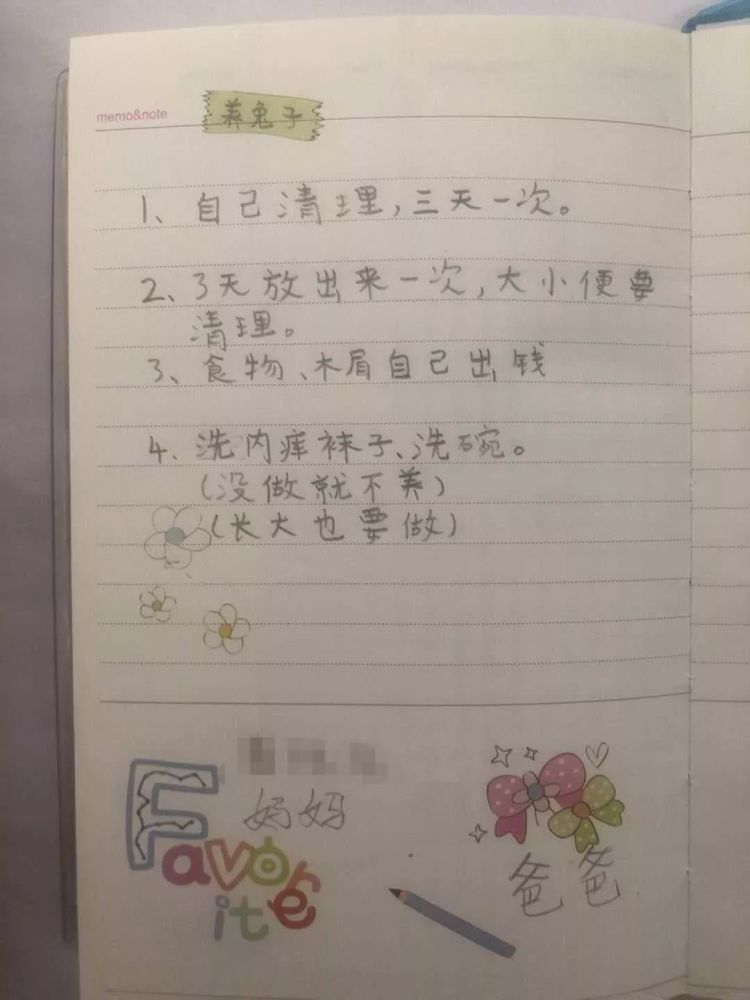 memo&note
养兔子
1、自己清理,三天一次。
2、3天放出来一次,大小便要
清理。
3、食物、木屑自己出钱
4、洗内库袜子、洗碗。
(没做就不养)
(长大也要做)
Favorite
妈妈
爸爸